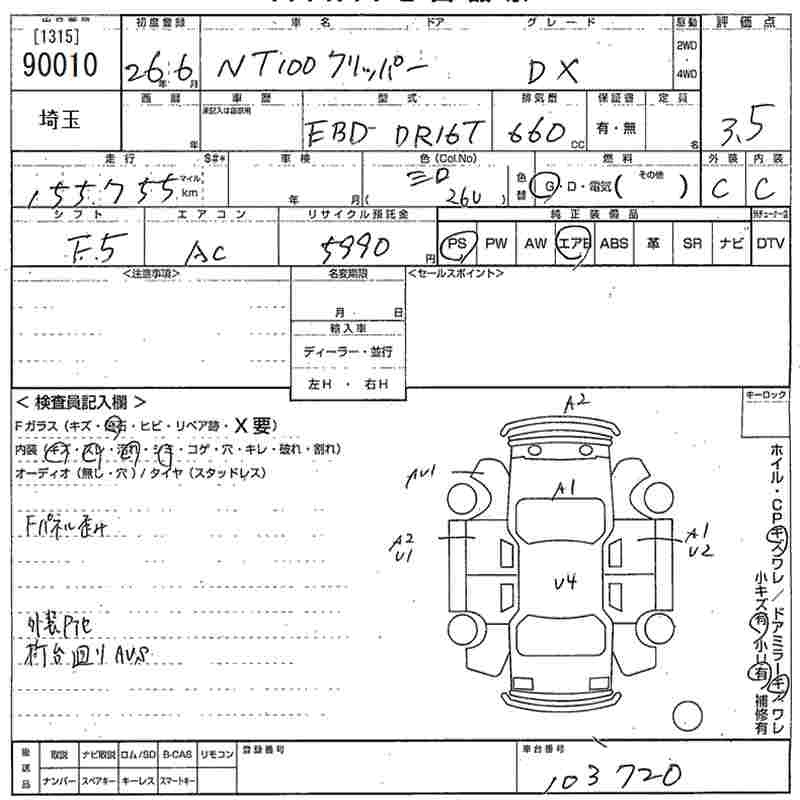 [1315]
90010
初度登録
車名
ドア
グレード
駆動
評価点
26年6月
NT100クリッパー
DX
2WD
・
4WD
3.5
埼玉
西暦
年
車歴
未記入は自家用
型式
EBD-DR16T
排気量
660cc
保証書
有・無
定員
名
走行
S#*
155,755
マイル
km
車検
年 月(
色(Col.No)
26U)
色替
燃料
G・D・電気(その他)
外装
C
内装
C
シフト
F.5
エアコン
AC
リサイクル預託金
5990円
純正装備品
PS PW AW エアB ABS 革 SR ナビ DTV
<注意事項>
名変期限
月 日
輸入車
ディーラー・並行
左H・右H
<セールスポイント>
キーロック
<検査員記入欄>
Fガラス(キズ・飛石・ヒビ・リペア跡・X要)
内装(キズ・スレ・汚れ・シミ・コゲ・穴・キレ・破れ・割れ)
オーディオ(無し・穴)/タイヤ(スタッドレス)
Fパネル歪み
外装P他
荷台回りAUS
A2
AU1
A1
A2
U1
A1
U2
U4
ホイル・CPキズワレ/ドアミラーキズワレ
小キズ有 小U有 補修有
後送品
取説 ナビ取説 ロム/SD B-CAS リモコン
ナンバー スペアキー キーレス スマートキー
登録番号
車台番号
103720